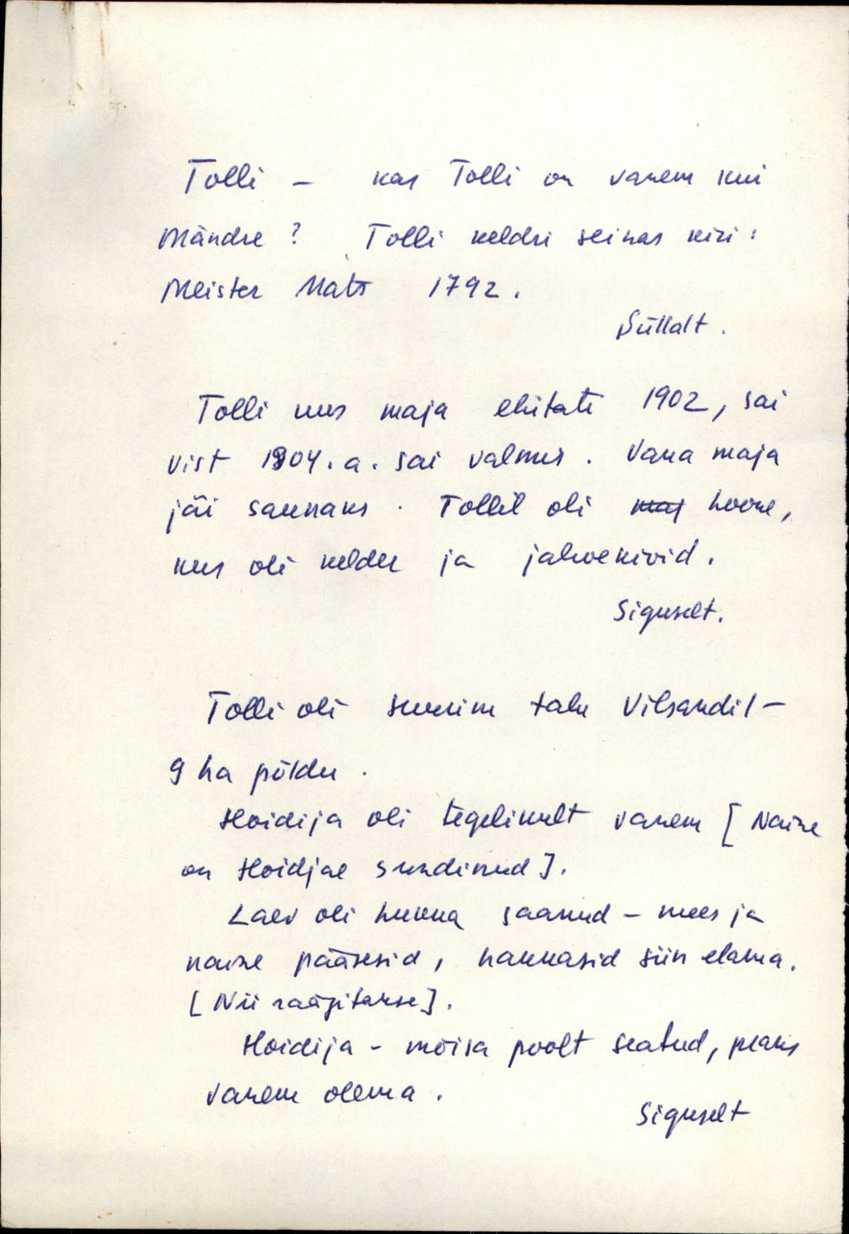 Tolli – kas Tolli on vanem kui
Mändre? Tolli keldri seinas kiri:
Meister Mats 1792.
Süllalt.
Tolli uus maja ehitati 1902, sai
vist 1904. a. sai valmis. Vana maja
jäi saunaks. Tollil oli maj hoone,
kus oli kelder ja jahvekivid.
Siguselt.
Tolli oli suurim talu Vilsandil –
9 ha põldu.
Hoidija oli tegelikult vanem [Naine
on Hoidjae sundinud].
Laev oli hukka saanud – mees ja
naine pääsesid, hakkasid siin elama.
[Nii räägitakse].
Hoidija – mõisa poolt seatud, peaks
vanem olema.
Siguselt